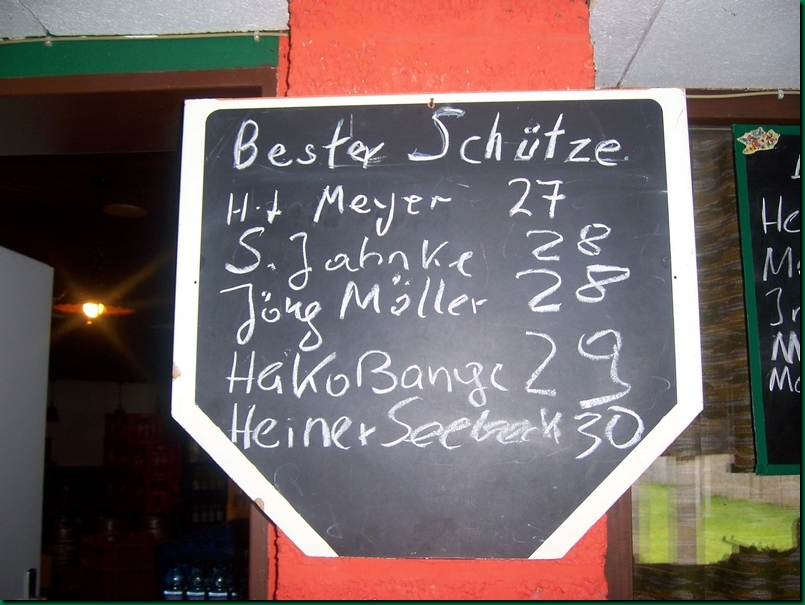 Bester Schütze
H.J. Meyer 27
S. Jahnke 28
Jörg Möller 28
Hako Bange 29
Heiner Seebeck 30